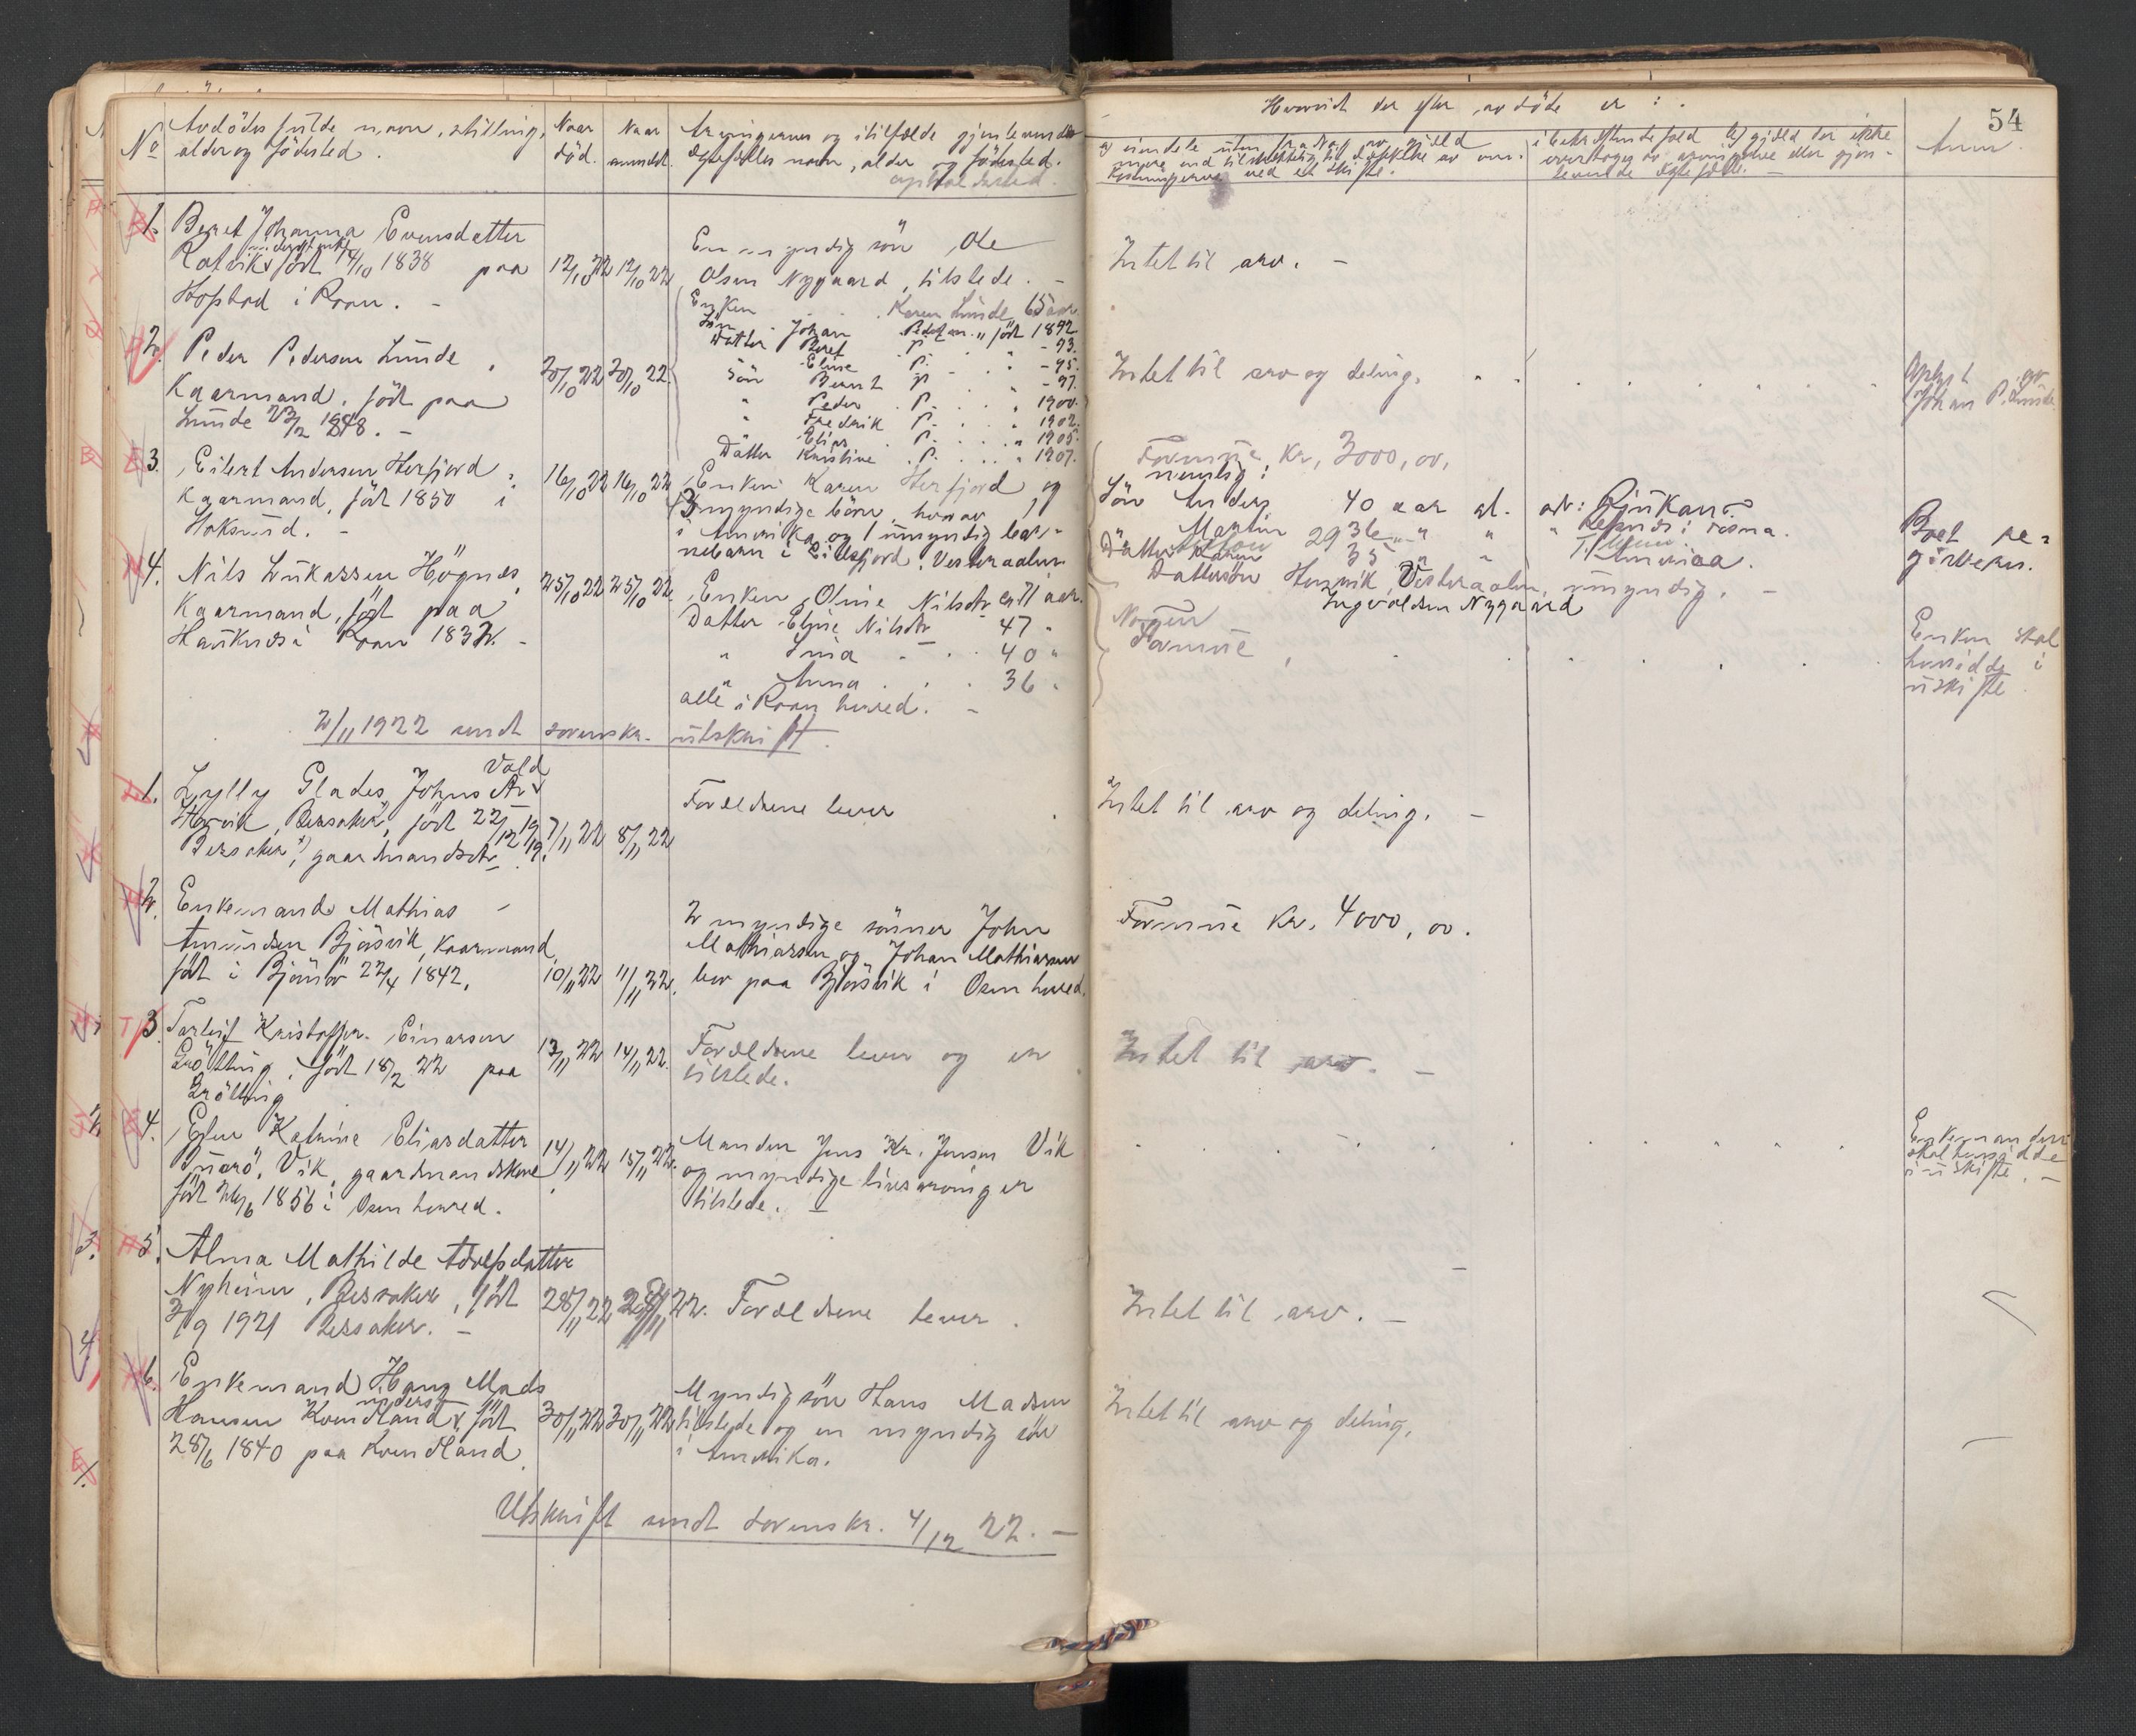 54
No
Avdödes fulde navn, stilling, alder og födested.
Naar död.
Naar anmeldt.
Arvingernes og i tilfælde gjenlevende
ægtefælles navn, alder og födested.
opholdssted.
Hvorvidt der efter avdöde er :
a) eiendele uten fradrag av gjeld
mere end tilstrækkelig til dækkelse av om-
kostningerne ved et skifte.
i bekræftende fald b) gjeld der ikke
overtages av arvingerne eller gjen-
levende ægtefælle. -
Anm.
1. Beret Johanna Evensdatter
Ratvik, født 14/10 1838 paa
Hopstad i Roan. -
12/10 22
12/10 22
En myndig sön Ole
Olsen Nygaard, tilstede. -
Intet til arv. -
2. Peder Pedersen Lunde
Kaarmand, född paa
Lunde 1848. -
30/10 22
30/10 22
Enken Karen Lunde 65 aar.
Sön Johan Peders. " född 1892
Datter Beret P. " - 93.
" Eline P. " - 95.
Sön Bernt P. " - 97.
" Peder P. " 1900.
" Fredrik P. " 1902.
" Elias P. " 1905.
Datter Kristine P. " 1907.
Intet til arv og deling.
Oplyst av
Johan P. Lunde
3. Eilert Andersen Herfjord
Kaarmand, född 1850 i
Hoksund. -
16/10 22
16/10 22
Enken Karen Herfjord og
3 myndige börn, hvorav 1
i Amerika og 1 umyndig bar-
nebarn i Eidsfjord, Vesteraalen.
Formue kr. 3000,00,
nemlig:
Sön Anders 40 aar at. adr: Rjukan
" Martin 36 " "
Datter Karen 35 " " Amerika.
Dattersön Henrik, Vesteraalen, umyndig. -
Ingvaldsen Nygaard
Boet be-
gjæres.
4. Nils Lukassen Högnes
Kaarmand, född paa
Hauknes i Roan 1837. -
25/10 22
25/10 22
Enken Oline Nilsdtr. 71 aar.
Datter Eline Nilsdtr 47 "
" Lina 40 "
" Anna 36 "
alle i Roan herred. -
Nogen
Formue
Enken skal
hensidde i
uskifte
2/11 1922 sendt sorenskr. utskrift.
1. Lylly Glades Johns Vold
Hopvik, Bessaker, född 22/12 19
Bessaker, gaardmandsdtr.
7/11 22
8/11 22
Forældrene lever
Intet til arv og deling. -
2. Enkemand Mathias
Amundsen Bjösvik, kaarmand,
född i Bjönör 22/4 1842.
10/11 22
11/11 22.
2 myndige sönner John
Mathiassen og Johan Mathiassen
bor paa Bjösvik i Osen herred.
Formue kr. 4000,00.
3. Torleif Kristoffer Einarsen
Grötting, född 18/2 22 paa
Grötting
13/11 22
14/11 22.
Forældrene lever og er
tilstede.
Intet til arv. -
4. Elen Katrine Eliasdatter
Vik, gaardmandskone
född 1856 i Osen herred.
14/11 22
15/11 22.
Manden Jens Kr. Jensen Vik
og myndige livsarvinger
tilstede. -
Enkemanden
skal hensidde
i uskifte. -
5. Alma Mathilde Adolfsdatter
Nyheim, Bessaker, född
3/9 1921 Bessaker. -
28/11 22
22.
Forældrene lever.
Intet til arv. -
6. Enkemand Hans Mads
Hansen Kvendland, född
28/6 1840 paa Kvendland.
30/11 22
30/11 22
Myndig sön Hans Madsen
tilstede og en myndig sön
i Amerika.
Intet til arv og deling.
Utskrift sendt sorenskr. 4/12 22. -